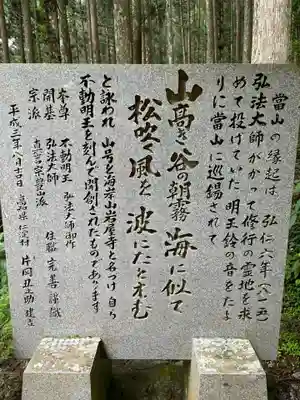 当山の縁起は、弘仁六年(八一五)
弘法大師がかって修行の霊地を求
めて投げていた明王鈴の音をたよ
りに當山に巡錫されて
山高き谷の朝霧海に似て
松吹く風を波にたとえむ
と詠われ 山号を海岸山岩屋寺と名づけ自ら
不動明王を刻んで開創されたものであります
本尊 不動明王 弘法大師御作
開基 弘法大師 住職
宗派 真言宗豊山派
平成三年八月吉日 高知県仁淀村 片岡 之助 建立